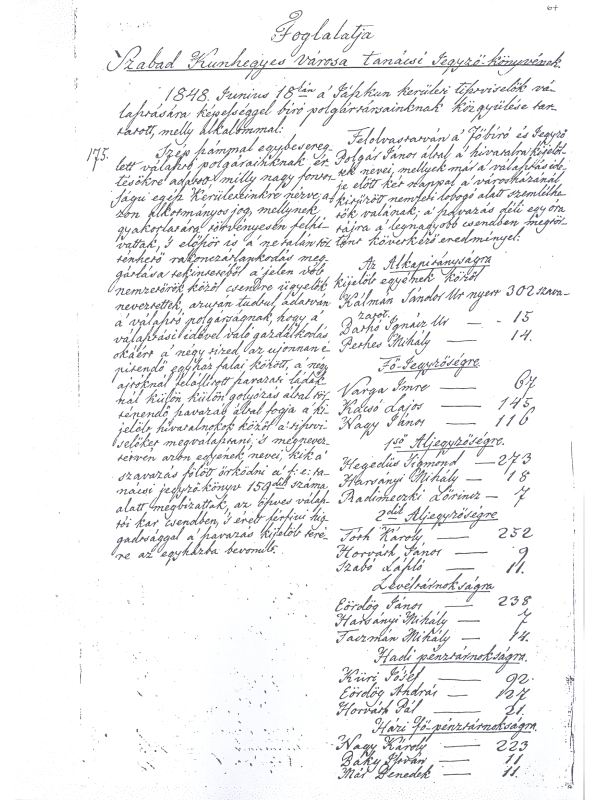 64
Foglalatja
Szabad Kunhegyes városa tanácsi Jegyző-könyvének
1848. Junius 18tán a' Jászkun kerületi tisztviselők vá-
lasztására képességgel biró polgártársainknak közgyülése tar-
tatott, melly alkalommal:
175.
Szép számmal egybesereg-
lett választó polgárainknak ér-
tésökre adatott milly nagy fontos-
ságu egész kerületeinkre nézve, a-
zon alkotmányos jog, mellynek
gyakorlatára törvényesen felhi-
vattak, 's először is a' netalán tör-
ténhető rakonczátlankodás meg-
gátlása tekintetéből a' jelen volt
nemzetőrök közől csendre ügyelők
neveztettek, azután tudtul adatván
a' választó polgárságnak, hogy a'
választási idővel való gazdálkodás
okáért a' négy tized az ujonnan é-
pitendő egyház falai között, a' négy
ajtóknál felállitott szavazati ládák-
nál külön külön golyózás által tör-
ténendő szavazás által fogja a' ki-
jelölt hivatalnokok közől a' tisztvi-
selőket megválasztani, 's megnevez-
tetvén azon egyének nevei, kik a'
szavazás fölött őrködni a' f: é: ta-
nácsi jegyző könyv 159dik száma
alatt megbizattak, az öszves válasz-
tói kar csendben, 's érett férfiui hig-
gadsággal a' szavazás kijelölt teré-
re az egyházba bevonult.
Felolvastatván a' Főbiró és Jegyző
Polgár János által a' hivatalra kijelöl-
tek nevei, mellyek már a' választás ide-
je előtt két nappal a' városházánál
kitűzött nemzeti lobogó alatt szemlélhe-
tők valának, a' szavazás déli egy óra
tájra a' legnagyobb csendben megtör-
tént következő eredménnyel:
Az Alkapitányságra
kijelölt egyének közől
Kálmán Sándor Ur nyert 302 szava-
zatot.
Darhó Ignácz Ur — - 15
Perhes Mihály — 14.
Fő-Jegyzőségre.
Varga Imre — 67.
Kácsó Lajos — 145
Nagy János — 116
1ső Aljegyzőségre.
Hegedüs Sigmond — 273
Harsányi Mihály — 18
Radimeczki Lőrincz — 7
2dik Aljegyzőségre
Tóth Károly — 252
Horváth János — 9
Szabó László — 11.
Levéltárnokságra
Eördög János — 238
Harsányi Mihály — 7
Taczmán Mihály — 14.
Hadi pénztárnokságra.
Küri Jósef — 92.
Eördög András — 127
Horváth Pál — 21.
Házi Fő-pénztárnokságra.
Nagy Károly — 223
Baky István — 11
Már Benedek — 11.